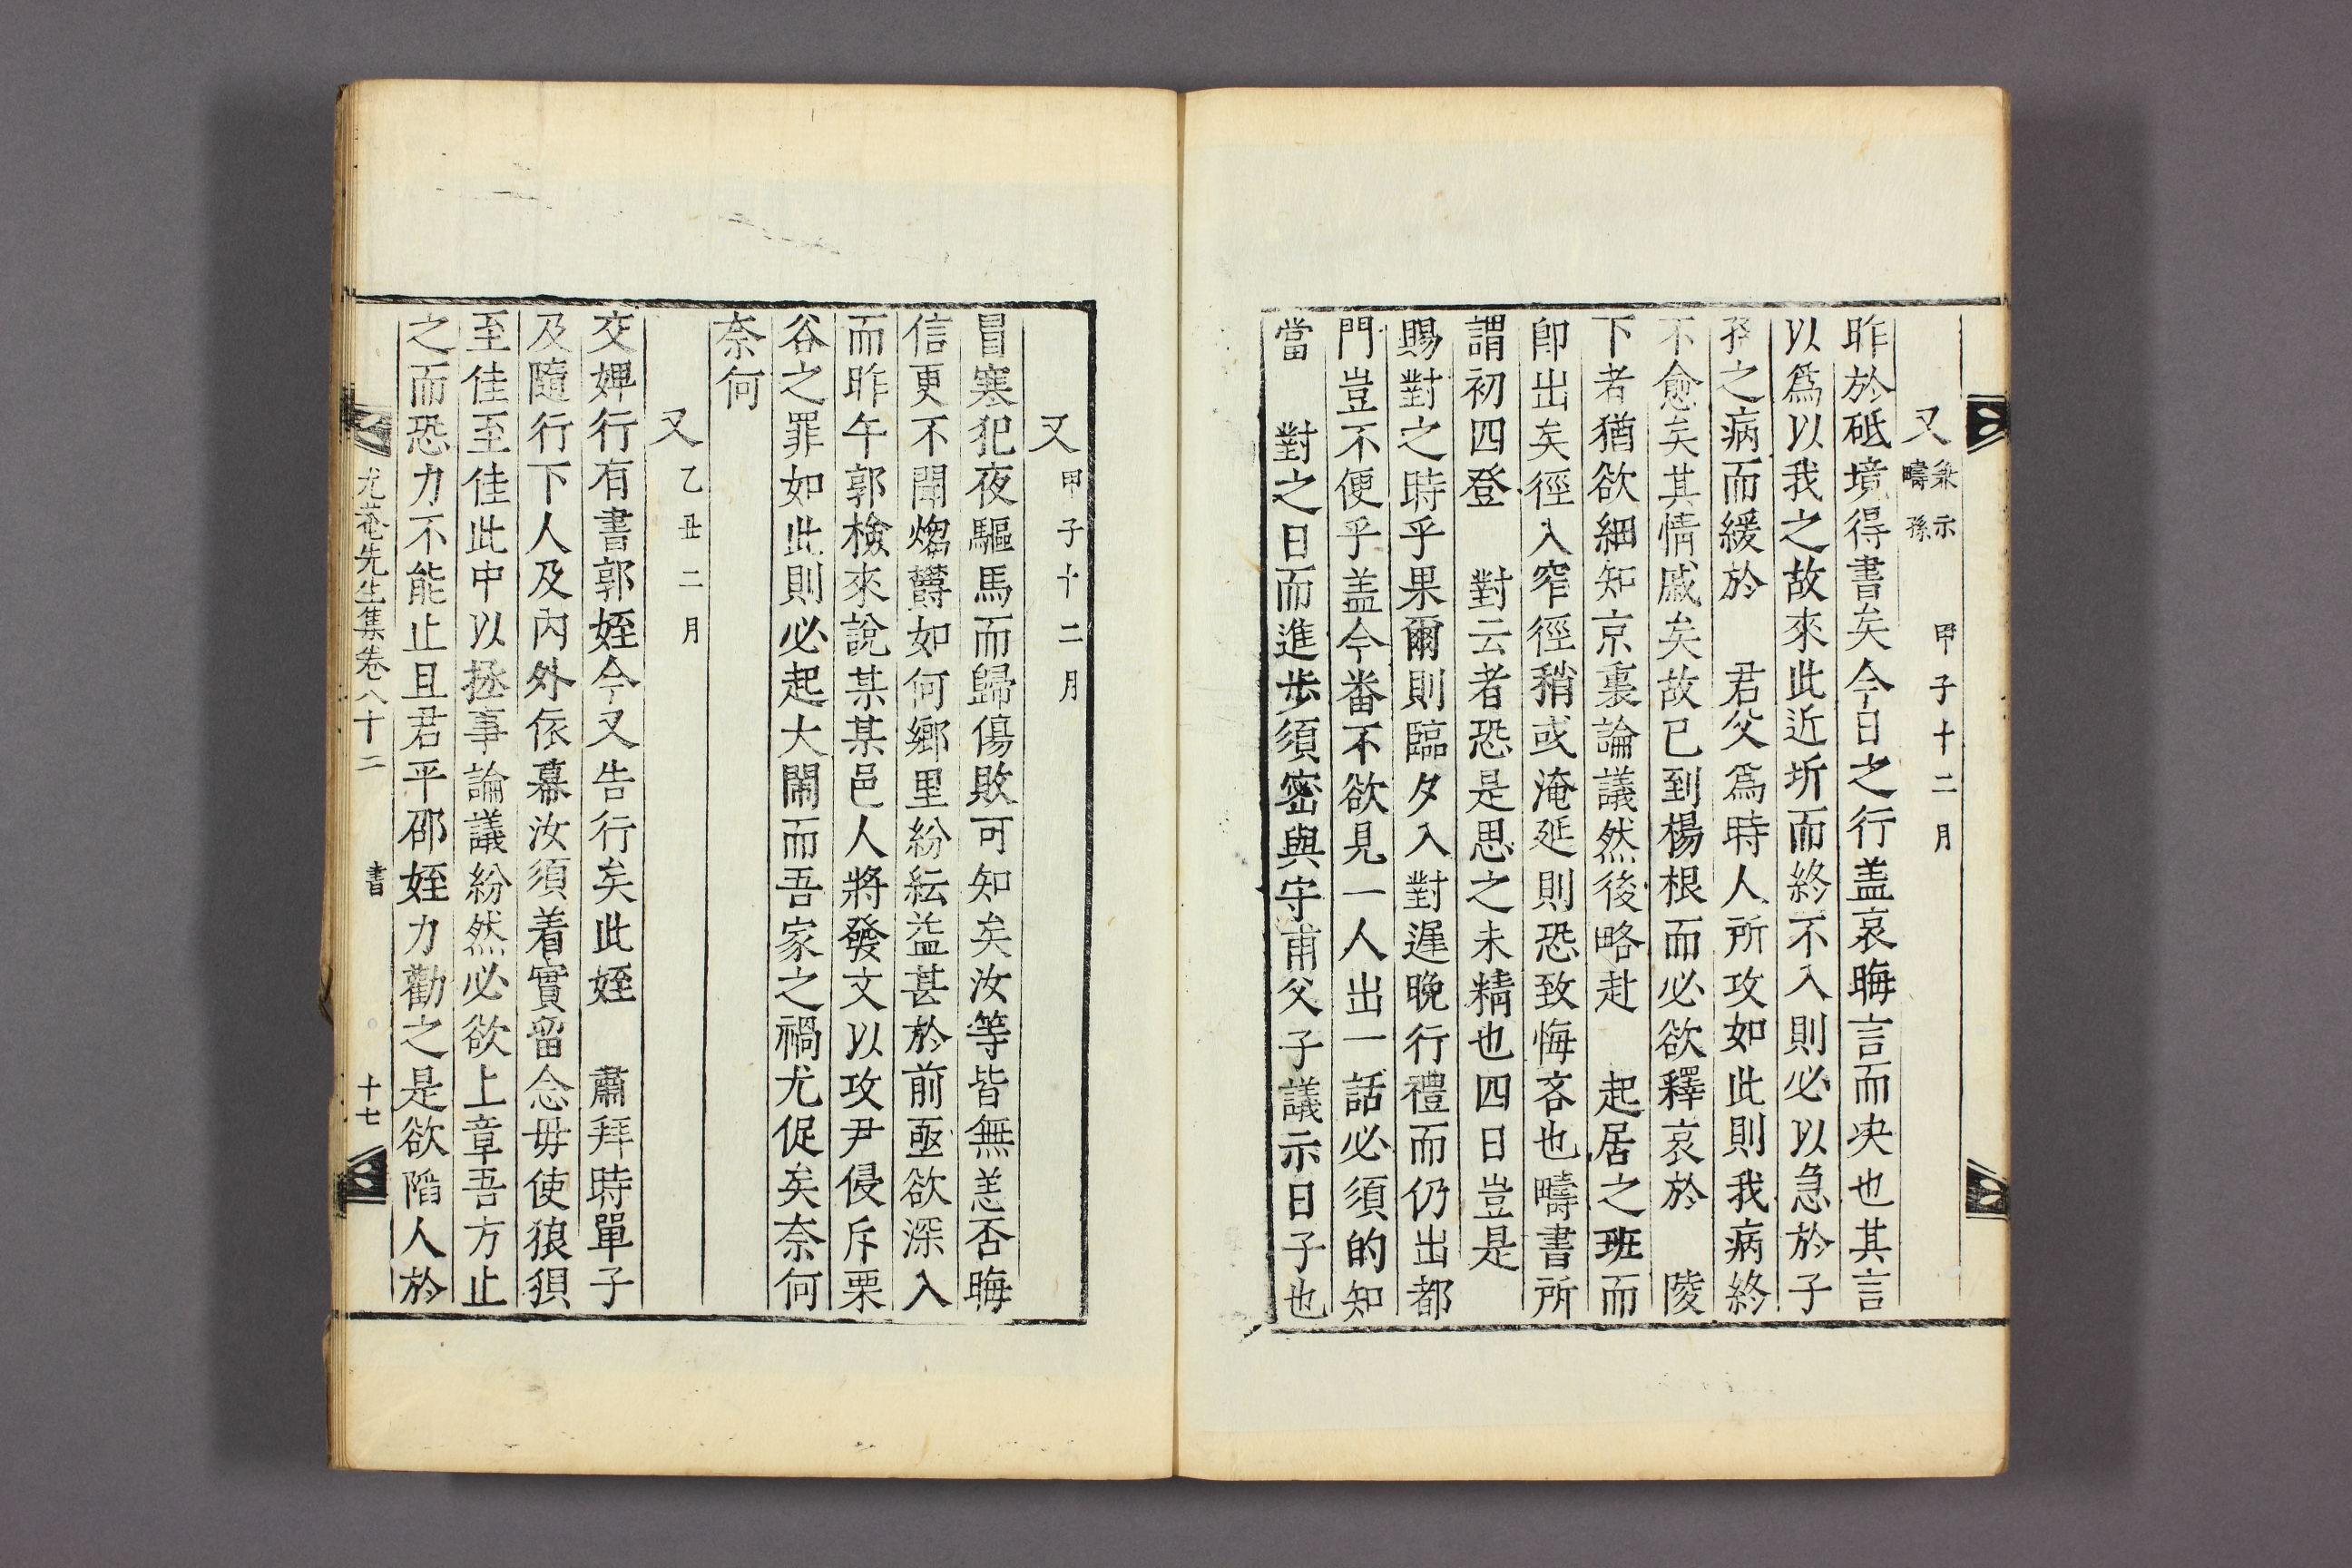 又 兼示疇孫 甲子十二月
昨於砥境得書矣今日之行盖哀晦言而决也其言
以爲以我之故來此近圻而終不入則必以急於子
孫之病而緩於 君父爲時人所攻如此則我病終
不愈矣其情戚矣故已到楊根而必欲釋哀於 陵
下者猶欲細知京裏論議然後略赴 起居之班而
卽出矣徑入窄徑稍或淹延則恐致悔吝也疇書所
謂初四登 對云者恐是思之未精也四日豈是
賜對之時乎果爾則臨夕入對遲晚行禮而仍出都
門豈不便乎盖今番不欲見一人出一話必須的知
當 對之日而進步須密與守甫父子議示日子也
又 甲子十二月
冒寒犯夜驅馬而歸傷敗可知矣汝等皆無恙否晦
信更不聞煼欝如何鄕里紛紜益甚於前亟欲深入
而昨午郭檢來說某某邑人將發文以攻尹侵斥栗
谷之罪如此則必起大鬧而吾家之禍尤促矣奈何
奈何
又 乙丑二月
交婢行有書郭姪今又告行矣此姪 肅拜時單子
及隨行下人及內外依幕汝須着實留念毋使狼狽
至佳至佳此中以拯事論議紛然必欲上章吾方止
之而恐力不能止且君平邵姪力勸之是欲陷人於
尤菴先生集卷八十二 書 十七